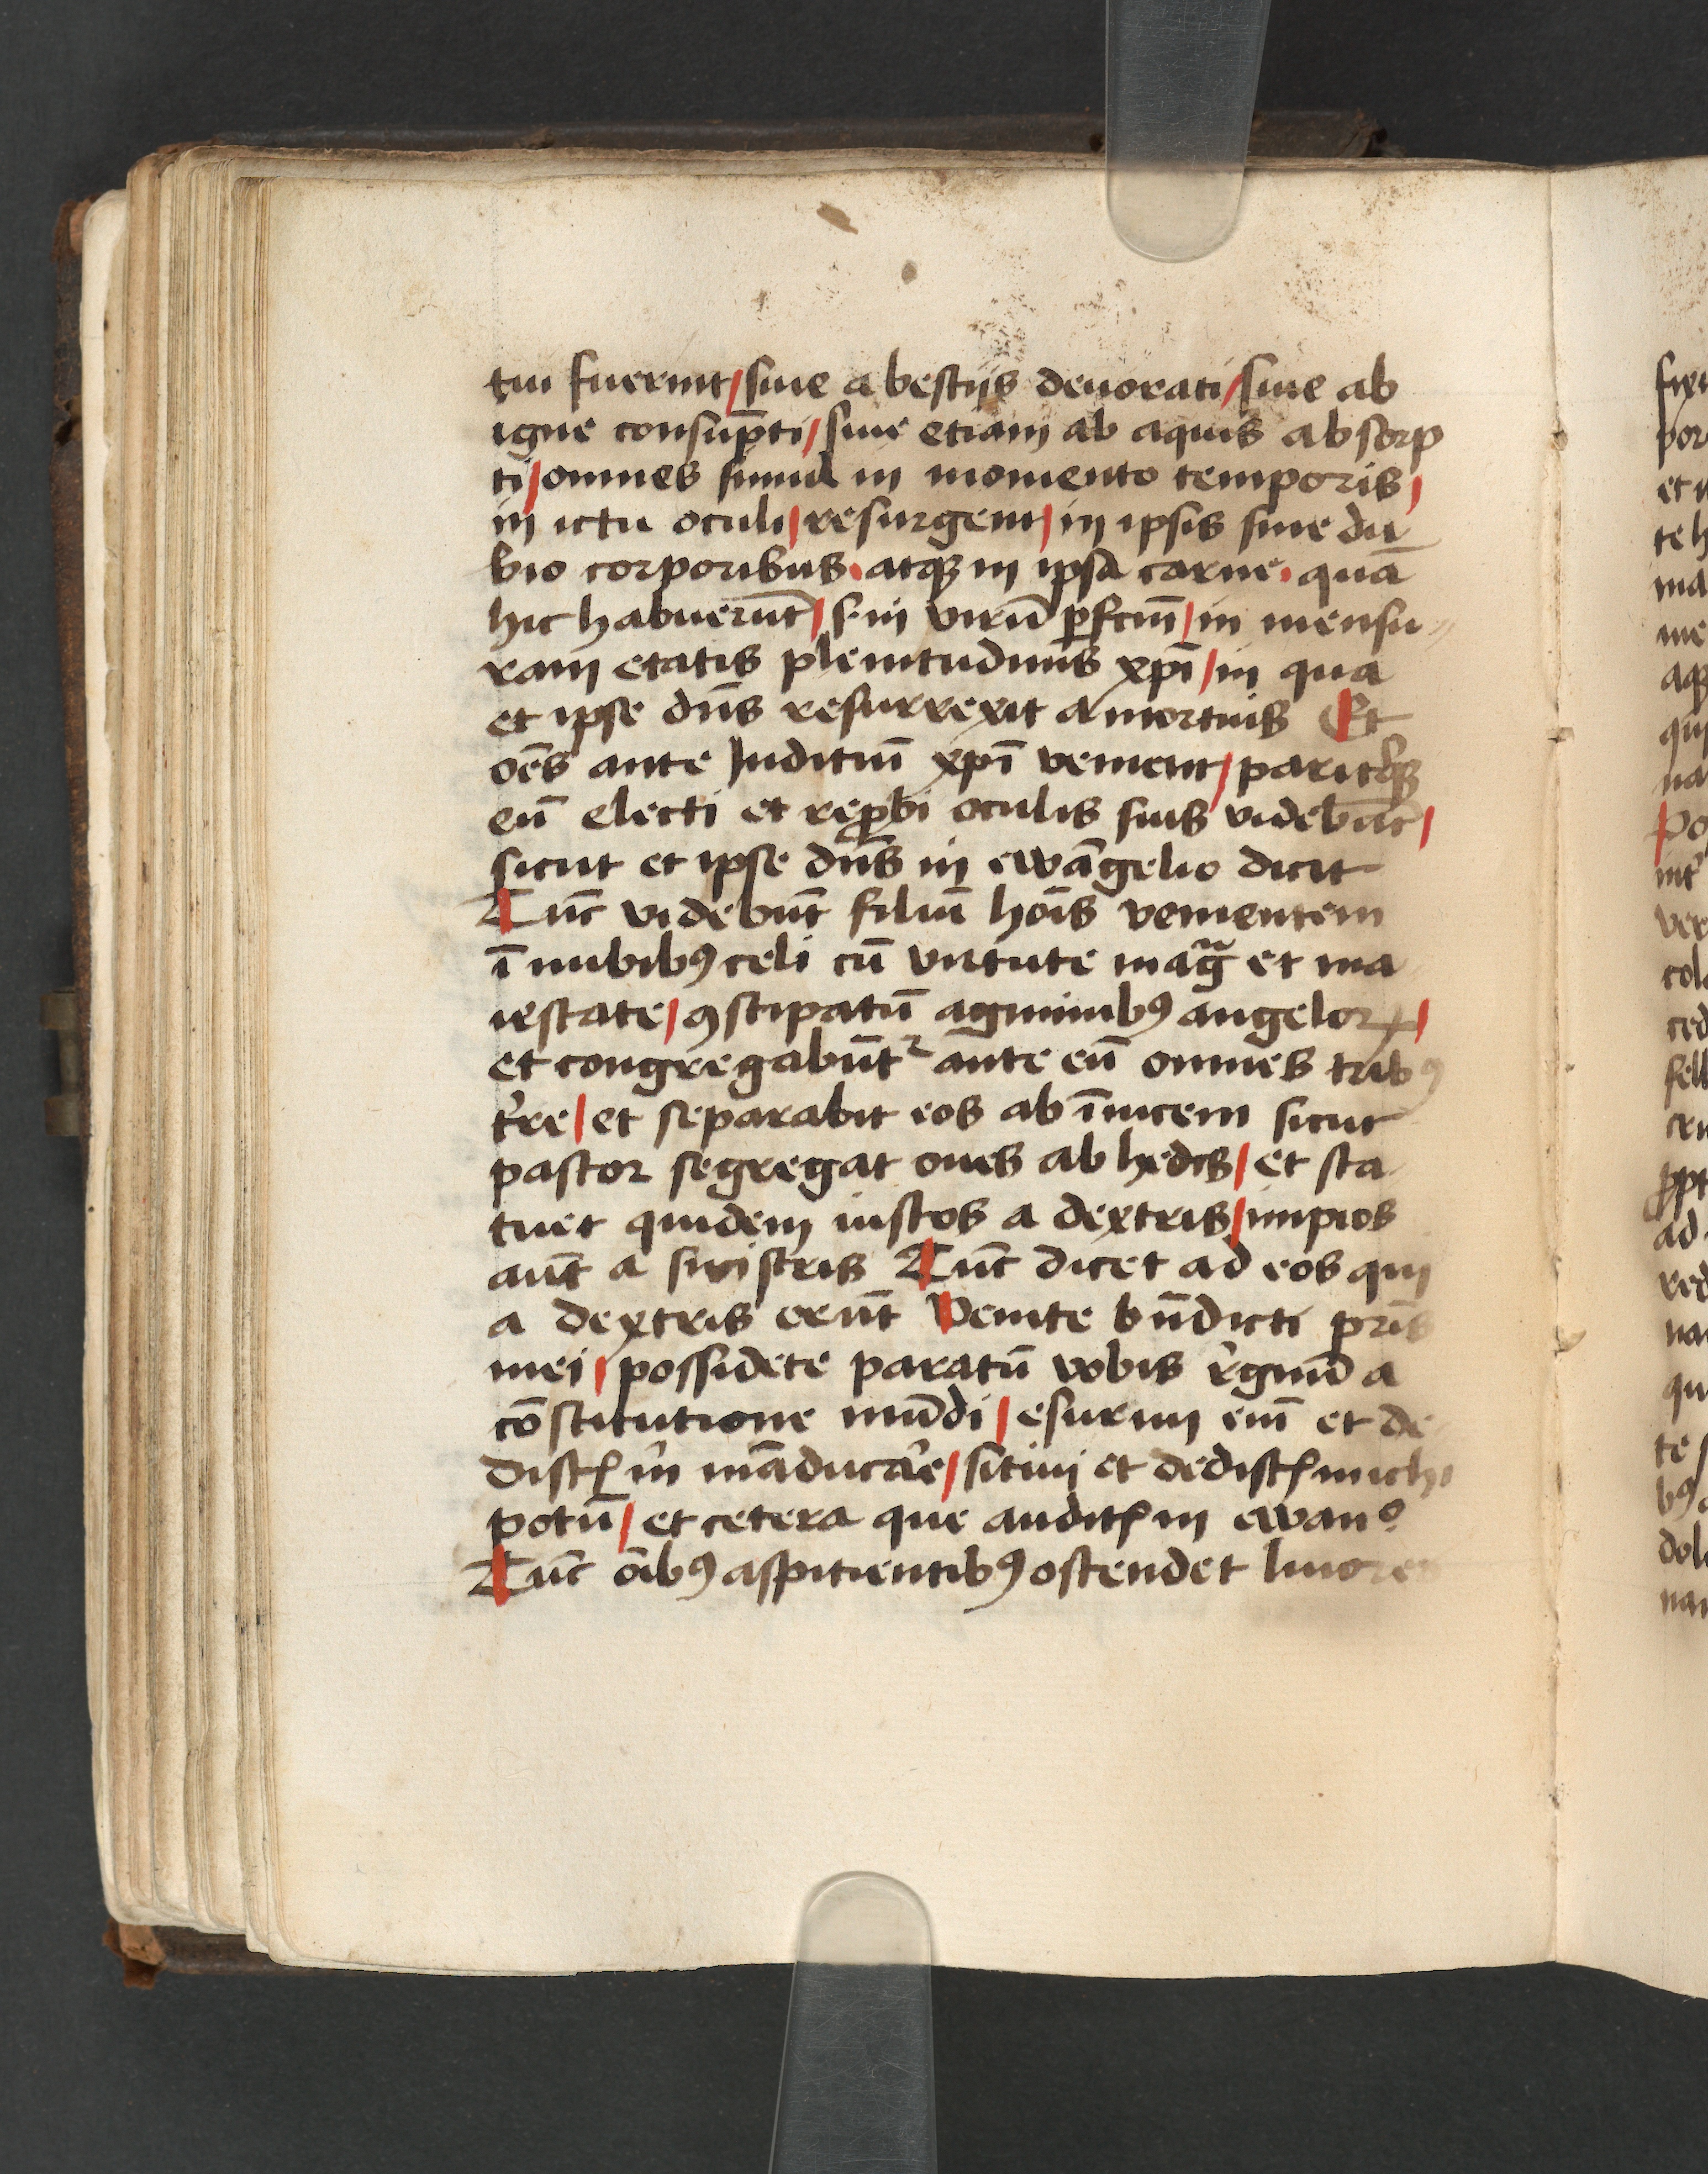 tui fuerint / siue a bestijs deuorati / siue ab
igne consūpti / siue etiam ab aquis absorp
ti / omnes simul in momento temporis /
in ictu oculi / resurgent / in ipsis sine du
bio corporibus · atqꝫ in ipsa carne · quā
hic habuerūt / s in virū ꝑfcm̄ / in mensu〃
ram etatis plenitudinis xpī / in qua
et ipse dn̄s resurrexit a mortuis Et
oēs ante Juditiū xpī venient / paritꝰqꝫ
eū electi et reꝓbi oculis suis videbūt /
sicut et ipse dn̄s in ewāgelio dicit
Tūc videbūt filiū hoīs venientem
ī nubibꝰ celi cū virtute mag̃ et ma
iestate / ꝯstipatū agminibꝰ angeloꝝ /
et congregabūtᷣ ante eū omnes tribꝰ
t̓re / et separabit eos ab īuicem sicut
pastor segregat oues ab hedis / et sta
tuet quidem iustos a dextris / impios
aūt a sinistris Tūc dicet ad eos qui
a dextris erūt Venite bn̄dicti pr̄is
mei / possidete paratū vobis r̓gnū a
cōstitutione mūdi / esuriui em̄ et de
distꝭ m̓ māducar̓e / sitiui et dedistꝭ michi
potū / et cetera que auditꝭ in ewanᵒ
Tūc oībꝰ aspitientibꝰ ostendet liuores